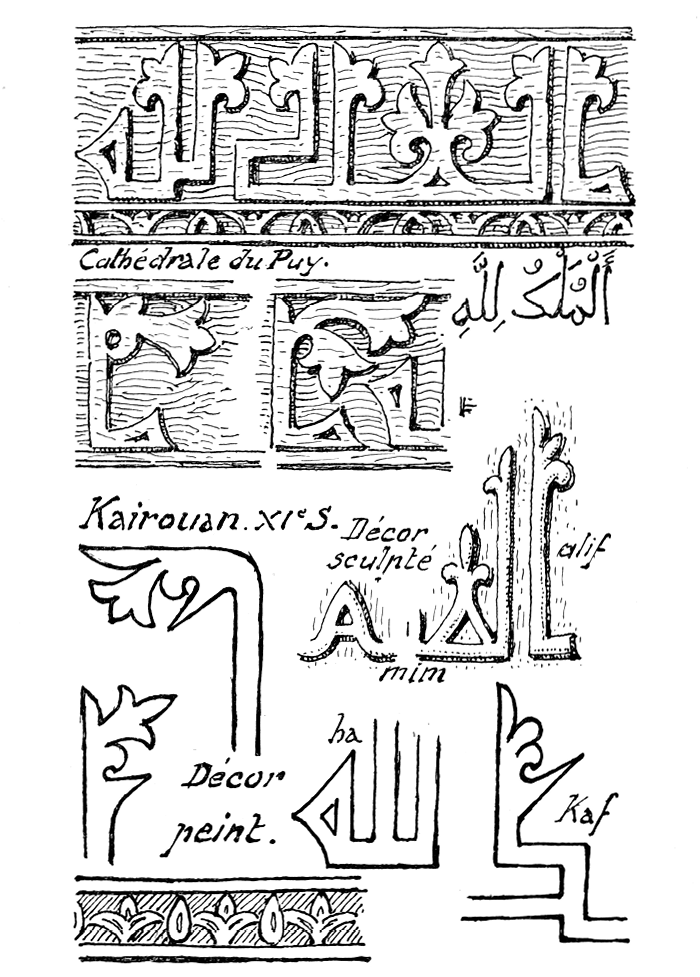 Cathédrale du Puy.
اَلْمُلْكُ لِلَّهِ
Kairouan. XIe S.
Décor
sculpté
alif
mim
ha
Décor
peint.
Kaf